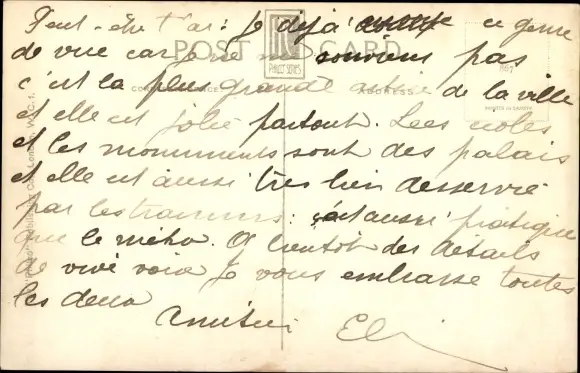 Peut-être t'ai: Je déjà ce genre
de vue car je ne me souviens pas
POST CARD
c'est la plus grande de la ville
CORRESPONDENCE
ADDRESS
et elle est jolie partout. Les écoles
et les monuments sont des palais
et elle est aussi très bien desservie
par les tramways: c'est aussi pratique
que le métro. A bientôt des détails
de vive voix Je vous embrasse toutes
les deux
Amitiés